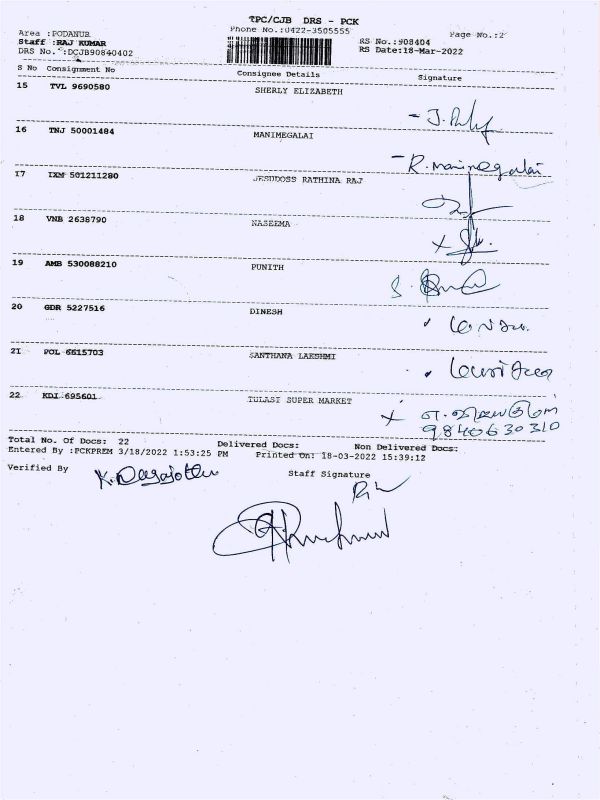 TPC/CJB DRS - PCK
Phone No.:0422-3505555
Page No.:2
Area :PODANUR
Staff :RAJ KUMAR
DRS No.:DCJB90840402
RS No.:908404
RS Date:18-Mar-2022
S No Consignment No Consignee Details Signature
15 TVL 9690580 SHERLY ELIZABETH
16 TNJ 50001484 MANIMEGALAI
- R. manimegalai
17 IXM 501211280 JESUDOSS RATHINA RAJ
18 VNB 2638790 NASEEMA
19 AMB 530088210 PUNITH
20 GDR 5227516 DINESH
21 POL 6615703 SANTHANA LAKSHMI
22 KDI 695601 TULASI SUPER MARKET
9840630310
Total No. Of Docs: 22 Delivered Docs: Non Delivered Docs:
Entered By :PCKPREM 3/18/2022 1:53:25 PM Printed On: 18-03-2022 15:39:12
Verified By Staff Signature